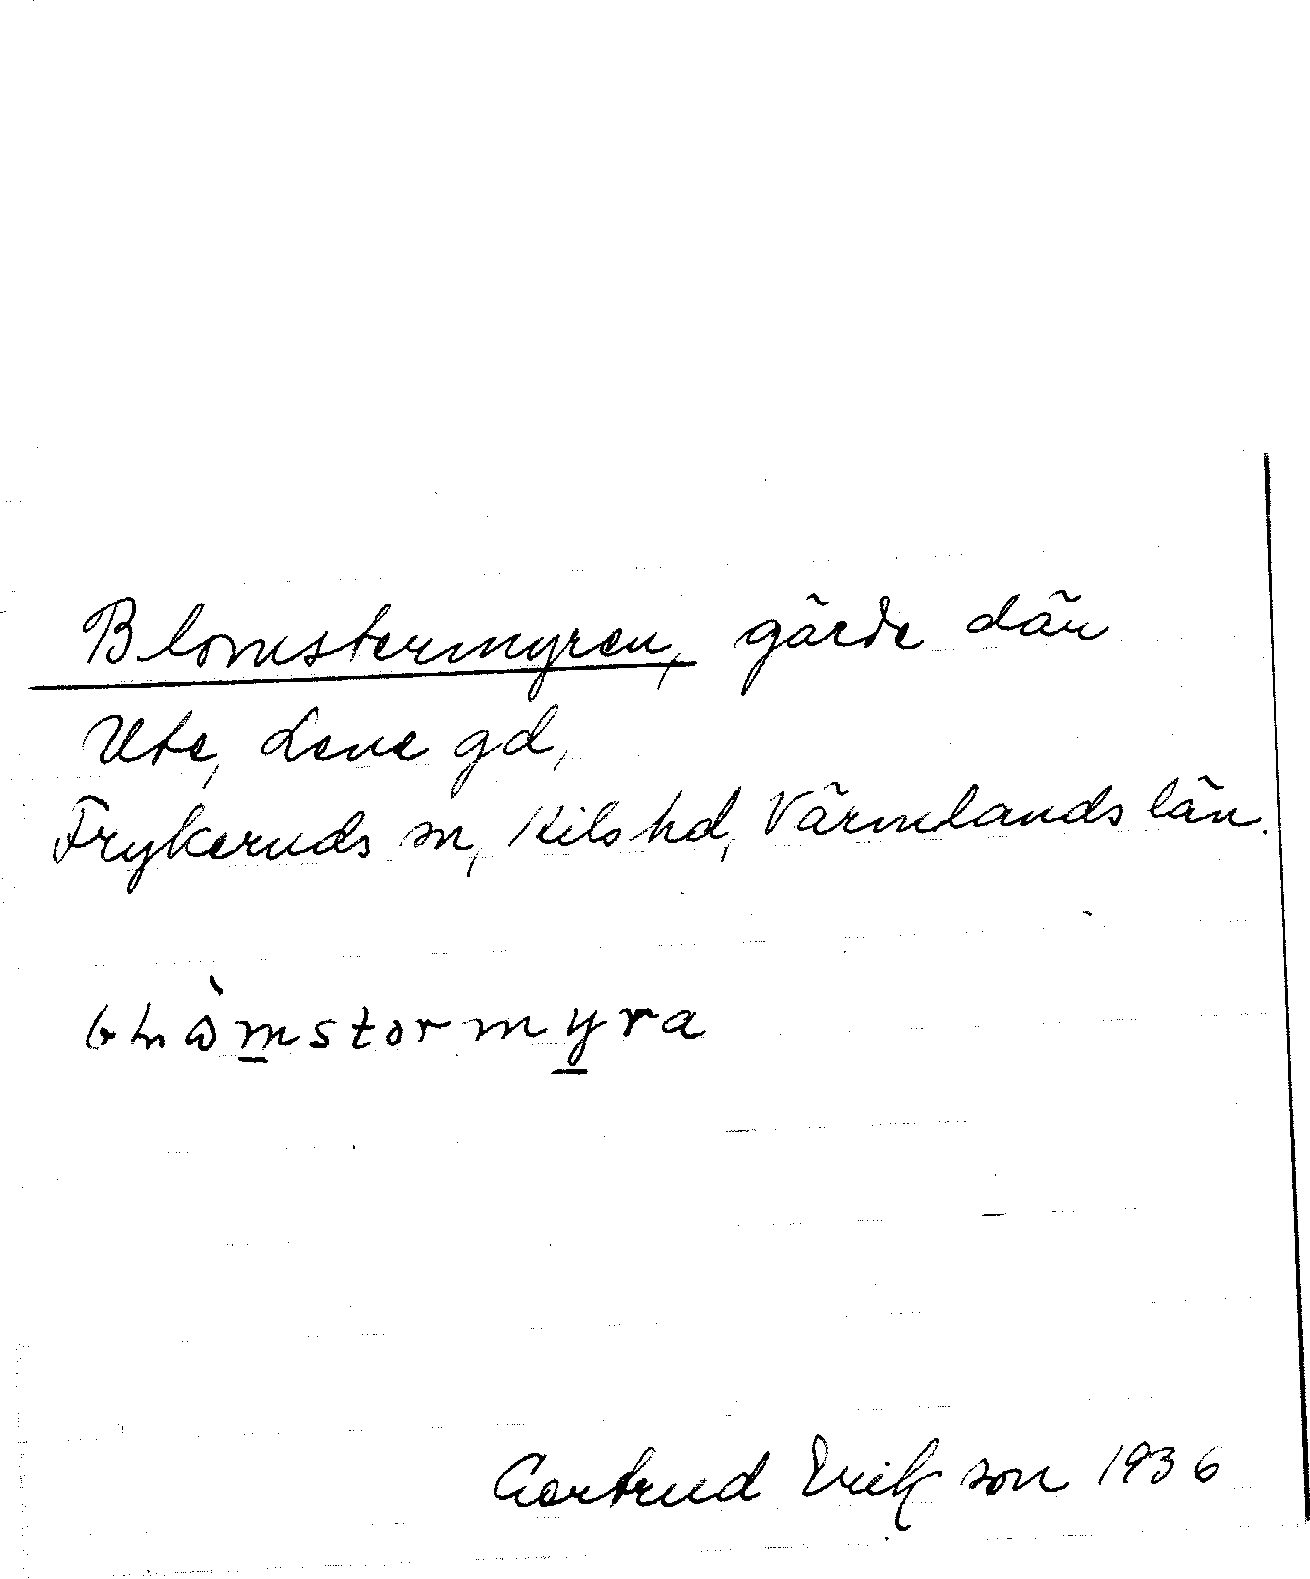 Blomstermyren, gärde där
Ute, Lene gd,
Frykeruds sn, Kils hd, Värmlands län.
Gertrud Erikson 1936